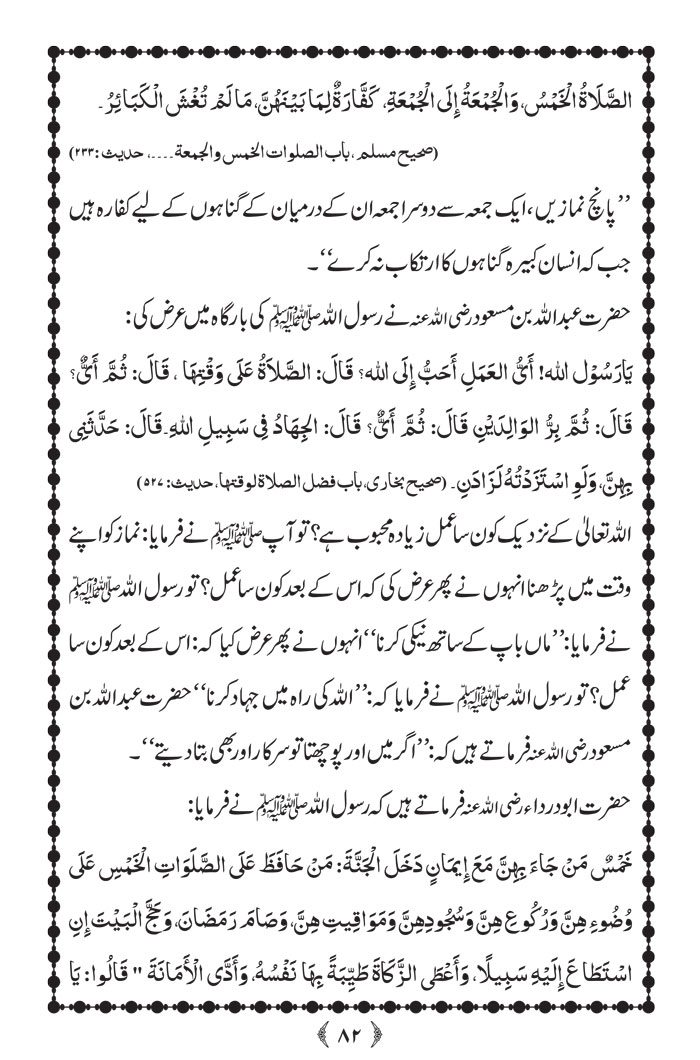 الصَّلَاةُ الْخَمْسُ، وَالْجُمْعَةُ إِلَى الْجُمْعَةِ، كَفَّارَةٌ لِمَا بَيْنَهُنَّ، مَا لَمْ تُغْشَ الْكَبَائِرُ۔
(صحیح مسلم، باب الصلوات الخمس والجمعة۔۔۔۔، حدیث: ۲۳۳)
’’پانچ نمازیں، ایک جمعہ سے دوسرا جمعہ ان کے درمیان کے گناہوں کے لیے کفارہ ہیں
جب کہ انسان کبیرہ گناہوں کا ارتکاب نہ کرے‘‘۔
حضرت عبداللہ بن مسعود رضی اللہ عنہ نے رسول اللہ ﷺ کی بارگاہ میں عرض کی:
يَارَسُوْل الله! أَىُّ العَمَلِ أَحَبُّ إِلَى الله؟ قَالَ: الصَّلاَةُ عَلَى وَقْتِهَا ، قَالَ: ثُمَّ أَىٌّ؟
قَالَ: ثُمَّ بِرُّ الوَالِدَيْنِ قَالَ: ثُمَّ أَىٌّ؟ قَالَ: الجِهَادُ فِى سَبِيلِ اللهِ۔قَالَ: حَدَّثَنِى
بِهِنَّ، وَلَوِ اسْتَزَدْتُهُ لَزَادَنِ۔ (صحیح بخاری، باب فضل الصلاة لوقتها، حدیث: ۵۲۷)
اللہ تعالیٰ کے نزدیک کون سا عمل زیادہ محبوب ہے؟ تو آپ ﷺ نے فرمایا: نماز کو اپنے
وقت میں پڑھنا انہوں نے پھر عرض کی کہ اس کے بعد کون سا عمل؟ تو رسول اللہ ﷺ
نے فرمایا: ’’ماں باپ کے ساتھ نیکی کرنا‘‘ انہوں نے پھر عرض کیا کہ: اس کے بعد کون سا
عمل؟ تو رسول اللہ ﷺ نے فرمایا کہ: ’’اللہ کی راہ میں جہاد کرنا‘‘ حضرت عبداللہ بن
مسعود رضی اللہ عنہ فرماتے ہیں کہ: ’’اگر میں اور پوچھتا تو سرکار اور بھی بتا دیتے‘‘۔
حضرت ابودرداء رضی اللہ عنہ فرماتے ہیں کہ رسول اللہ ﷺ نے فرمایا:
خَمْسٌ مَنْ جَاءَ بِهِنَّ مَعَ إِيمَانٍ دَخَلَ الْجَنَّةَ: مَنْ حَافَظَ عَلَى الصَّلَوَاتِ الْخَمْسِ عَلَى
وُضُوءِ هِنَّ وَرُكُوعِ هِنَّ وَسُجُودِهِنَّ وَمَوَاقِيتِ هِنَّ، وَصَامَ رَمَضَانَ، وَحَجَّ الْبَيْتَ إِنِ
اسْتَطَاعَ إِلَيْهِ سَبِيلًا، وَأَعْطَى الزَّكَاةَ طَيِّبَةً بِهَا نَفْسُهُ، وَأَدَّى الْأَمَانَةَ " قَالُوا: يَا
﴿ ۸۲ ﴾